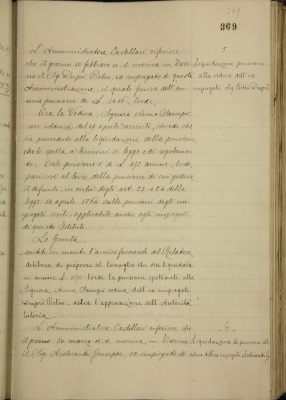 369
L'Amministratore Castellari riferisce
che il giorno 10 febbraio u. s. moriva in
no il Sig. Pietro, ex impiegato di questa
Amministrazione, il quale fruiva dell'an
nua pensione di £ 1416, lorde.
Ora la Vedova, Signora Anna
con istanza del 19 aprile corrente, chiede che
sia provveduto alla liquidazione della pensione
che le spetta a termini di legge e di regolamen
to. Tale pensione è di £ 472 annue, lorde,
pari cioè al terzo della pensione di cui godeva
il defunto, in virtù degli art. 23 e 24 della
legge 14 aprile 1864 sulle pensioni degli im
piegati civili, applicabile anche agli impiegati
di questo Istituto.
La Giunta
udito in merito l'avviso favorevole del Relatore
delibera di proporre al Consiglio che sia liquidata
in annue £ 472 lorde la pensione spettante alla
Signora Anna vedova dell'ex impiegato
Pietro, salva l'approvazione dell'Autorità
tutoria.
L'Amministratore Castellari riferisce che
il giorno 30 marzo u. s. moriva in
il Sig. Giuseppe, ex impiegato di
5
Liquidazione pensione
alla vedova dell'ex
impiegato Sig. Pietro
6
Liquidazione di pensione alla
vedova dell'ex impiegato